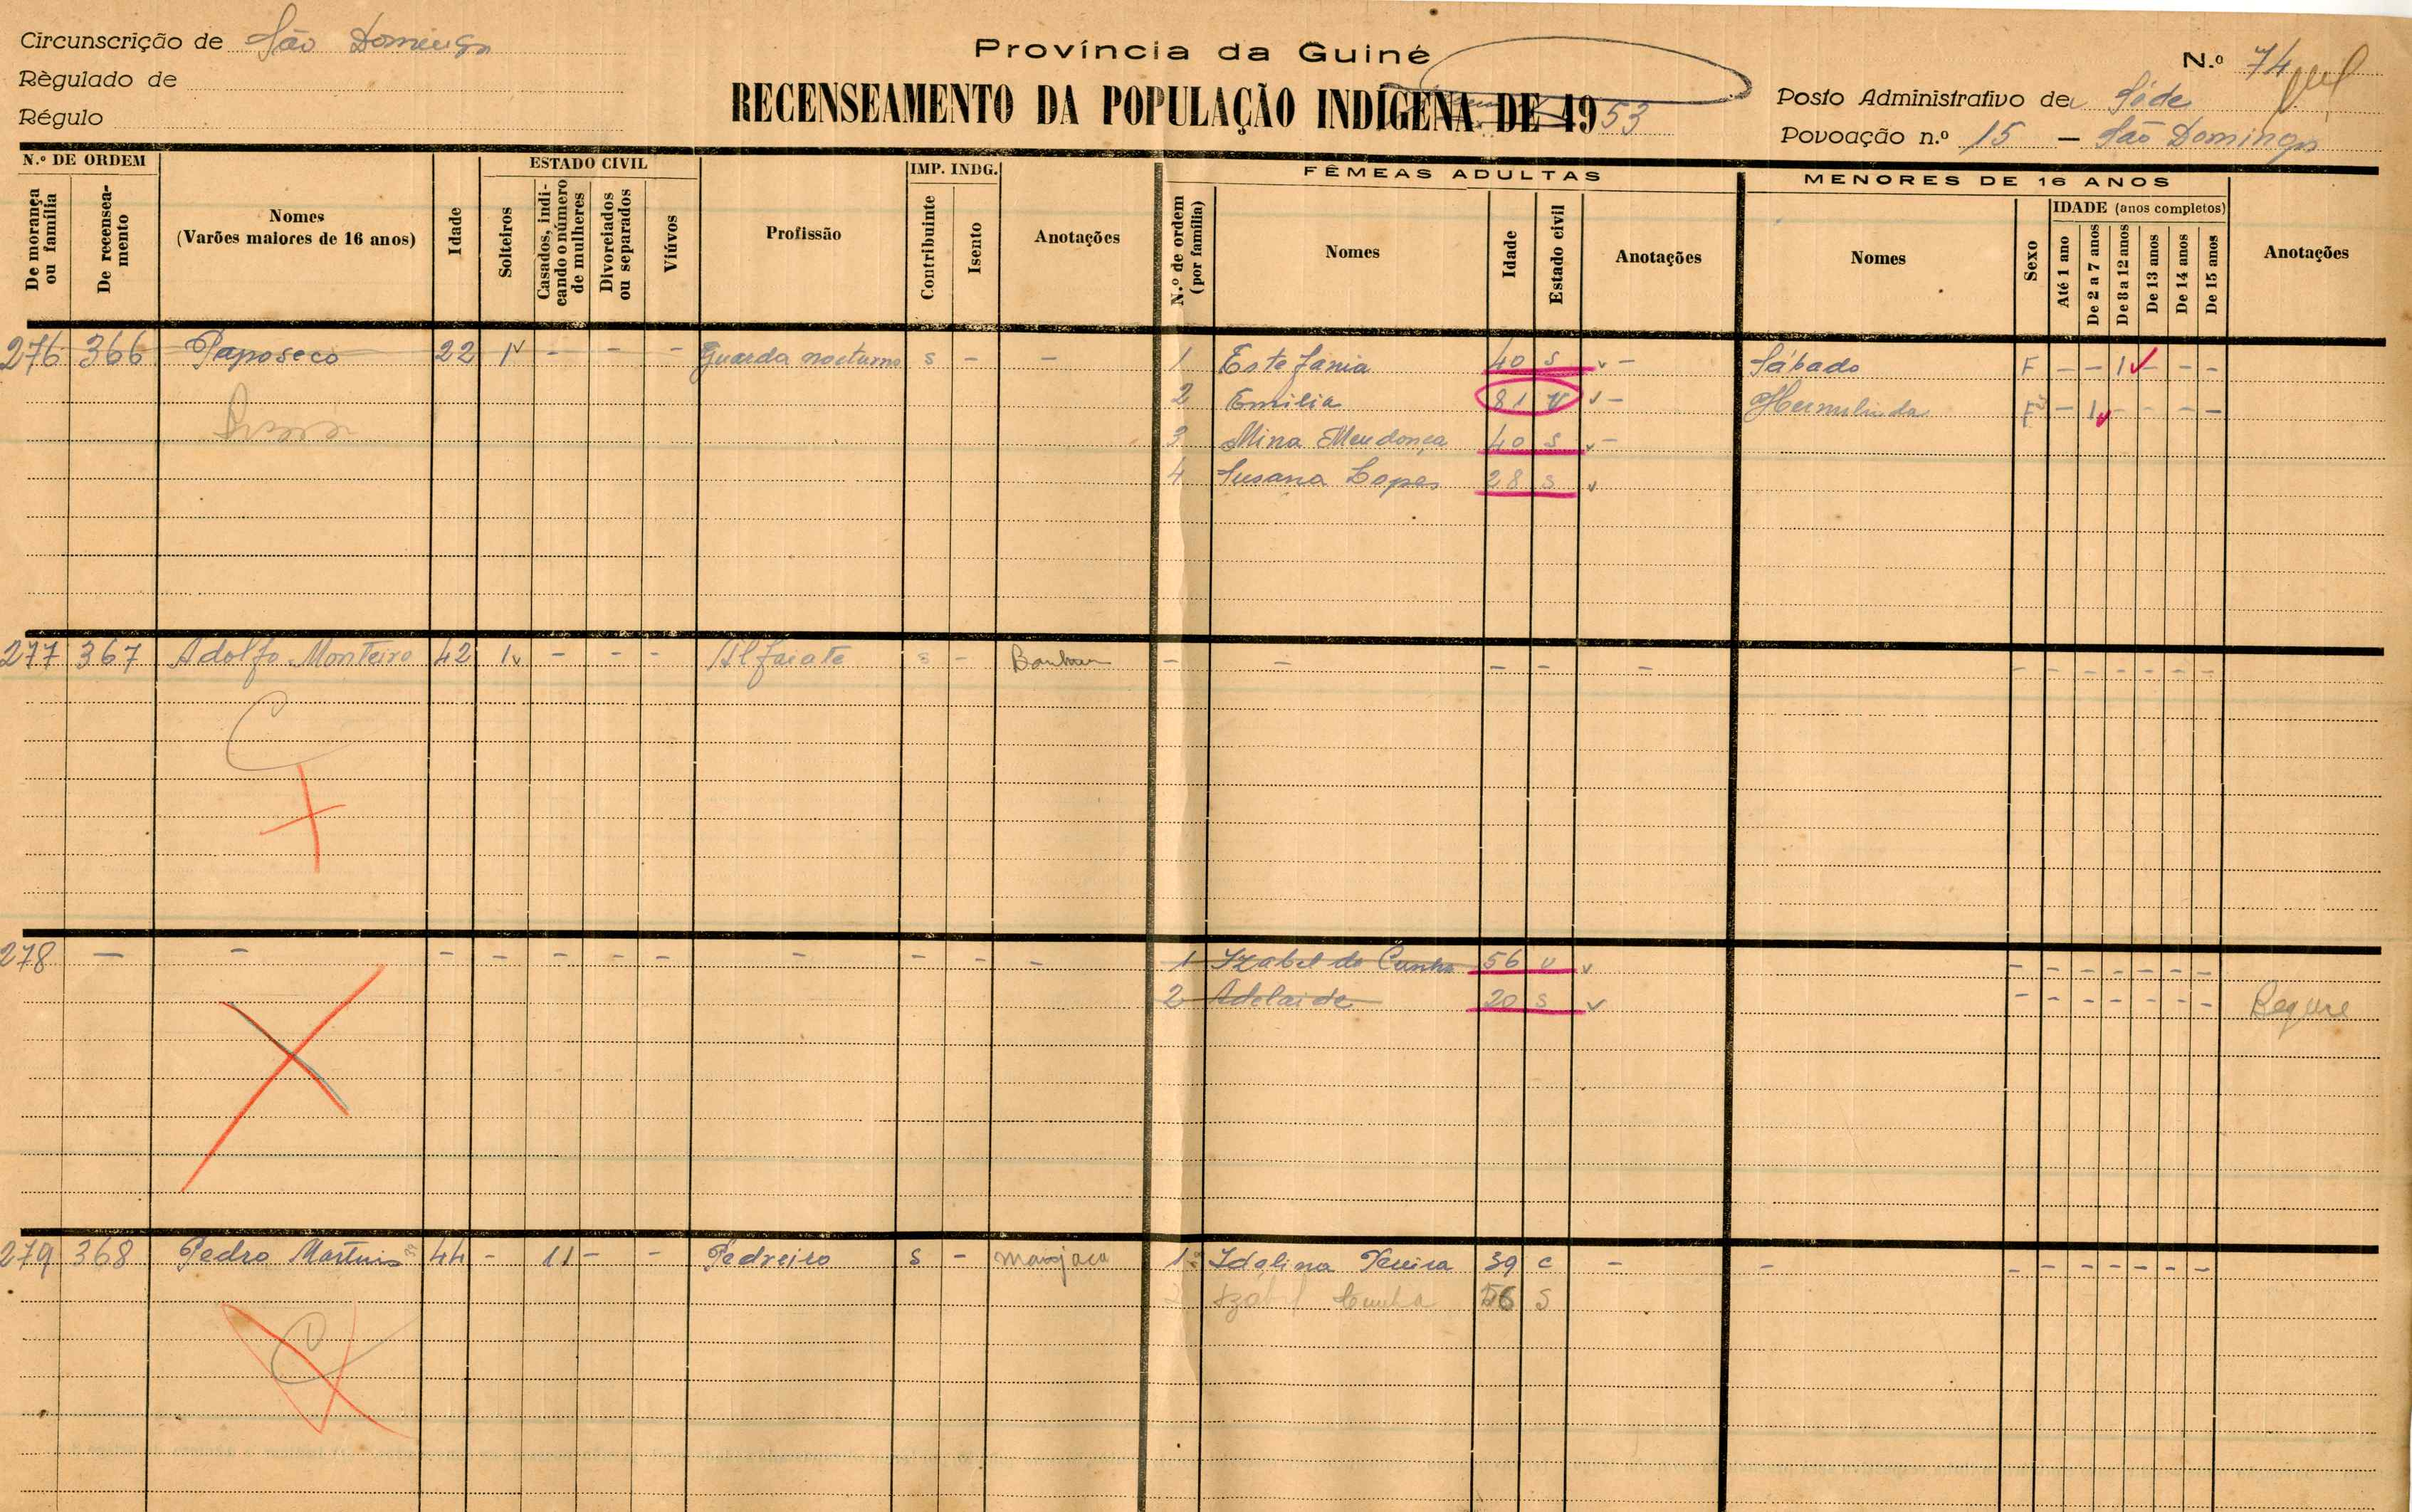 Circunscrição de São Domingos
Règulado de
Régulo
Província da Guiné
RECENSEAMENTO DA POPULAÇÃO INDÍGENA DE 1953
N.º 74
Posto Administrativo de Séde
Povoação n.º 15 — São Domingos
N.º DE ORDEM
De morança ou família
De recenseamento
Nomes
(Varões maiores de 16 anos)
Idade
ESTADO CIVIL
Solteiros
Casados, indicando o número de mulheres
Divorciados ou separados
Viúvos
Profissão
IMP. INDG.
Contribuinte
Isento
Anotações
FÊMEAS ADULTAS
N.º de ordem (por família)
Nomes
Idade
Estado civil
Anotações
MENORES DE 16 ANOS
Nomes
Sexo
IDADE (anos completos)
Até 1 ano
De 2 a 7 anos
De 8 a 12 anos
De 13 anos
De 14 anos
De 15 anos
Anotações
276 366 Paposeco 22 1 - - - Guarda nocturno s - - 1 Estefania 40 s - Sábado F - - 1 - - -
2 Emilia 81 v - Hermelinda F - 1 - - - -
3 Mina Mendonça 40 s -
4 Susana Lopes 28 s
277 367 Adolfo Monteiro 42 1 - - - Alfaiate s - - - - - - - - - - - - -
278 - - - - - - - - - - - 1 Izabel da Cunha 56 v - - - - - - -
2 Adelaide 20 s - - - - - - -
279 368 Pedro Martins 44 - 11 - - Pedreiro s - manjaco 1 Idalina Pereira 39 c - - - - - - - - -
2 Izabel Cunha 56 S